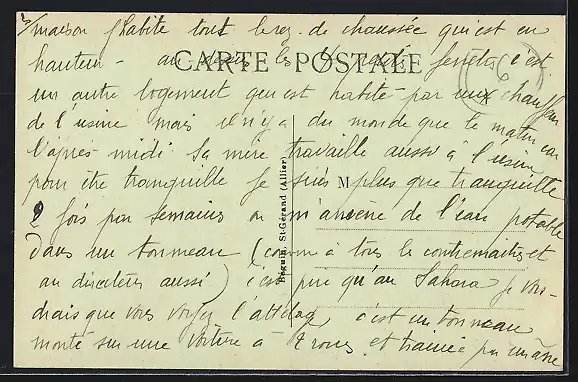 maison J'habite tout le rez-de chaussée qui est en
hauteur - au dessus les 4 petits fenetres c'est
CARTE POSTALE
un autre logement qui est habité par un chauffeur
de l'usine mais il n'y a du monde que le matin car
l'après-midi sa mère travaille aussi à l'usine
pour être tranquille je suis plus que tranquille
M
2 fois par semaines on m'amène de l'eau potable
dans un tonneau (comme à tous les contremaitres et
au directeur aussi) c'est pire qu'au Sahara je vou-
drais que vous voyez l'attelage, c'est un tonneau
monté sur une voiture à 2 roues et trainée par un âne
Béguin, St-Gérand (Allier)